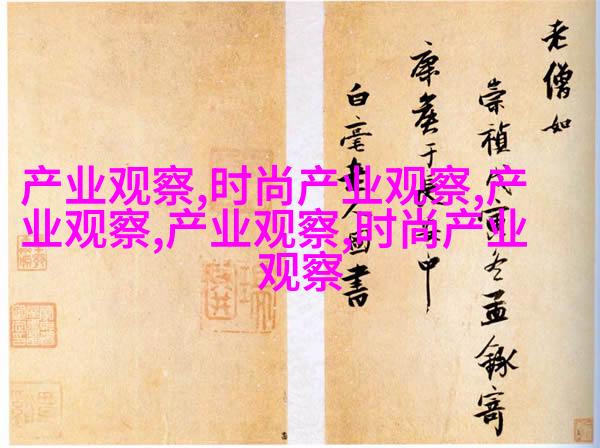 产业观察,时尚产业观察,产
业观察,产业观察,时尚产业
观察
老僧如
崇禎戊寅冬孟錄寄
康侯于長中
白毫人書